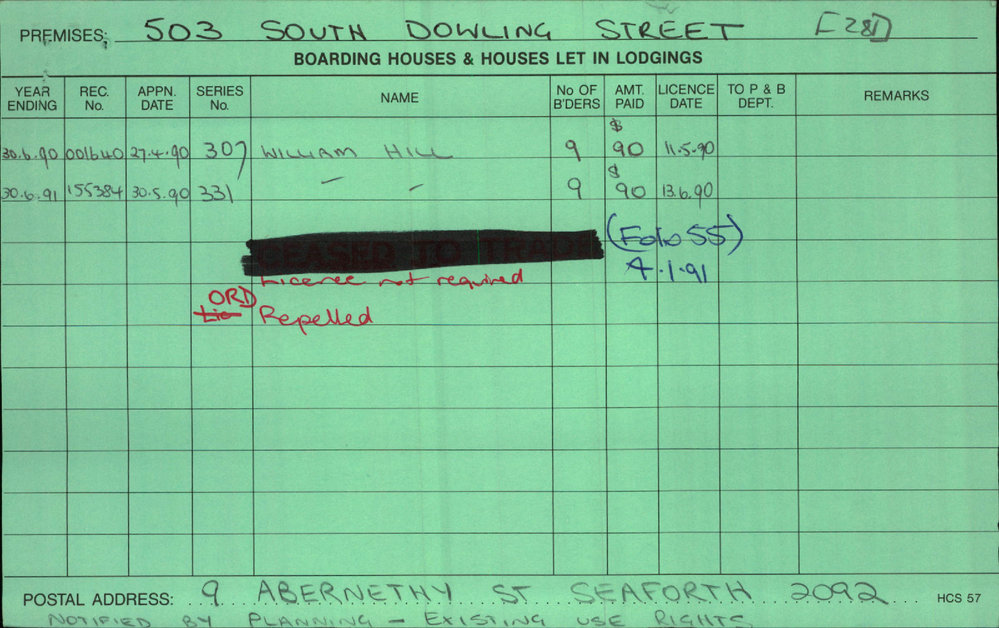 PREMISES: 503 SOUTH DOWLING STREET [281]
BOARDING HOUSES & HOUSES LET IN LODGINGS
YEAR ENDING REC. No. APPN. DATE SERIES No. NAME No OF B'DERS AMT. PAID LICENCE DATE TO P & B DEPT. REMARKS
30.6.90 001640 27.4.90 307 WILLIAM HILL 9 $ 90 11.5.90
30.6.91 155384 30.5.90 331 — — 9 $ 90 13.6.90
CEASED TO TRADE (Folo 55)
4.1.91
Licence not required
ORD
Lic Repelled
POSTAL ADDRESS: 9 ABERNETHY ST SEAFORTH 2092 HCS 57
NOTIFIED BY PLANNING — EXISTING USE RIGHTS